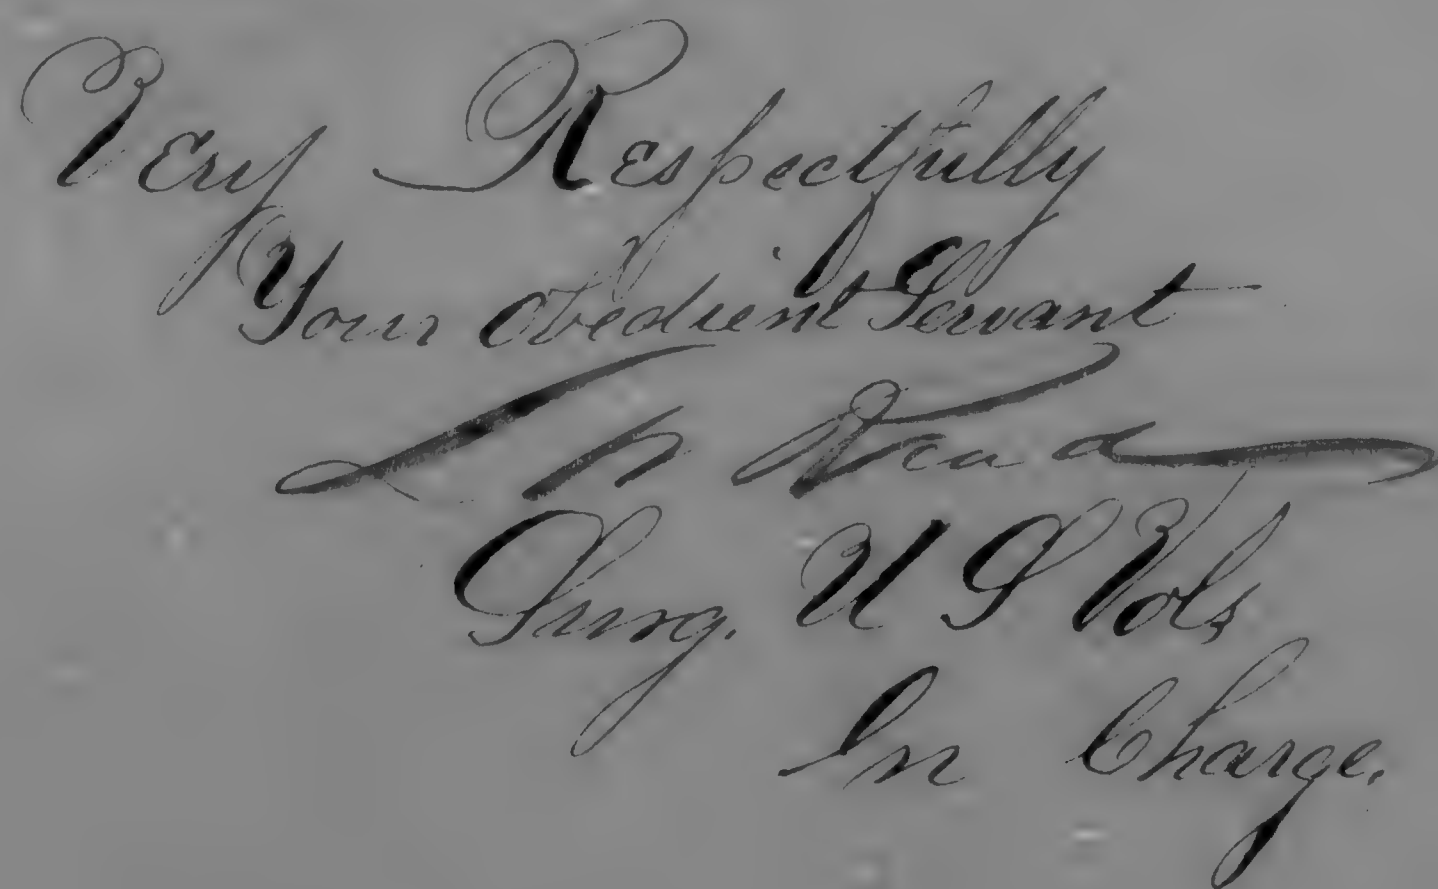 Very Respectfully
Your obedient Servant
Surg. U S Vols
In Charge.